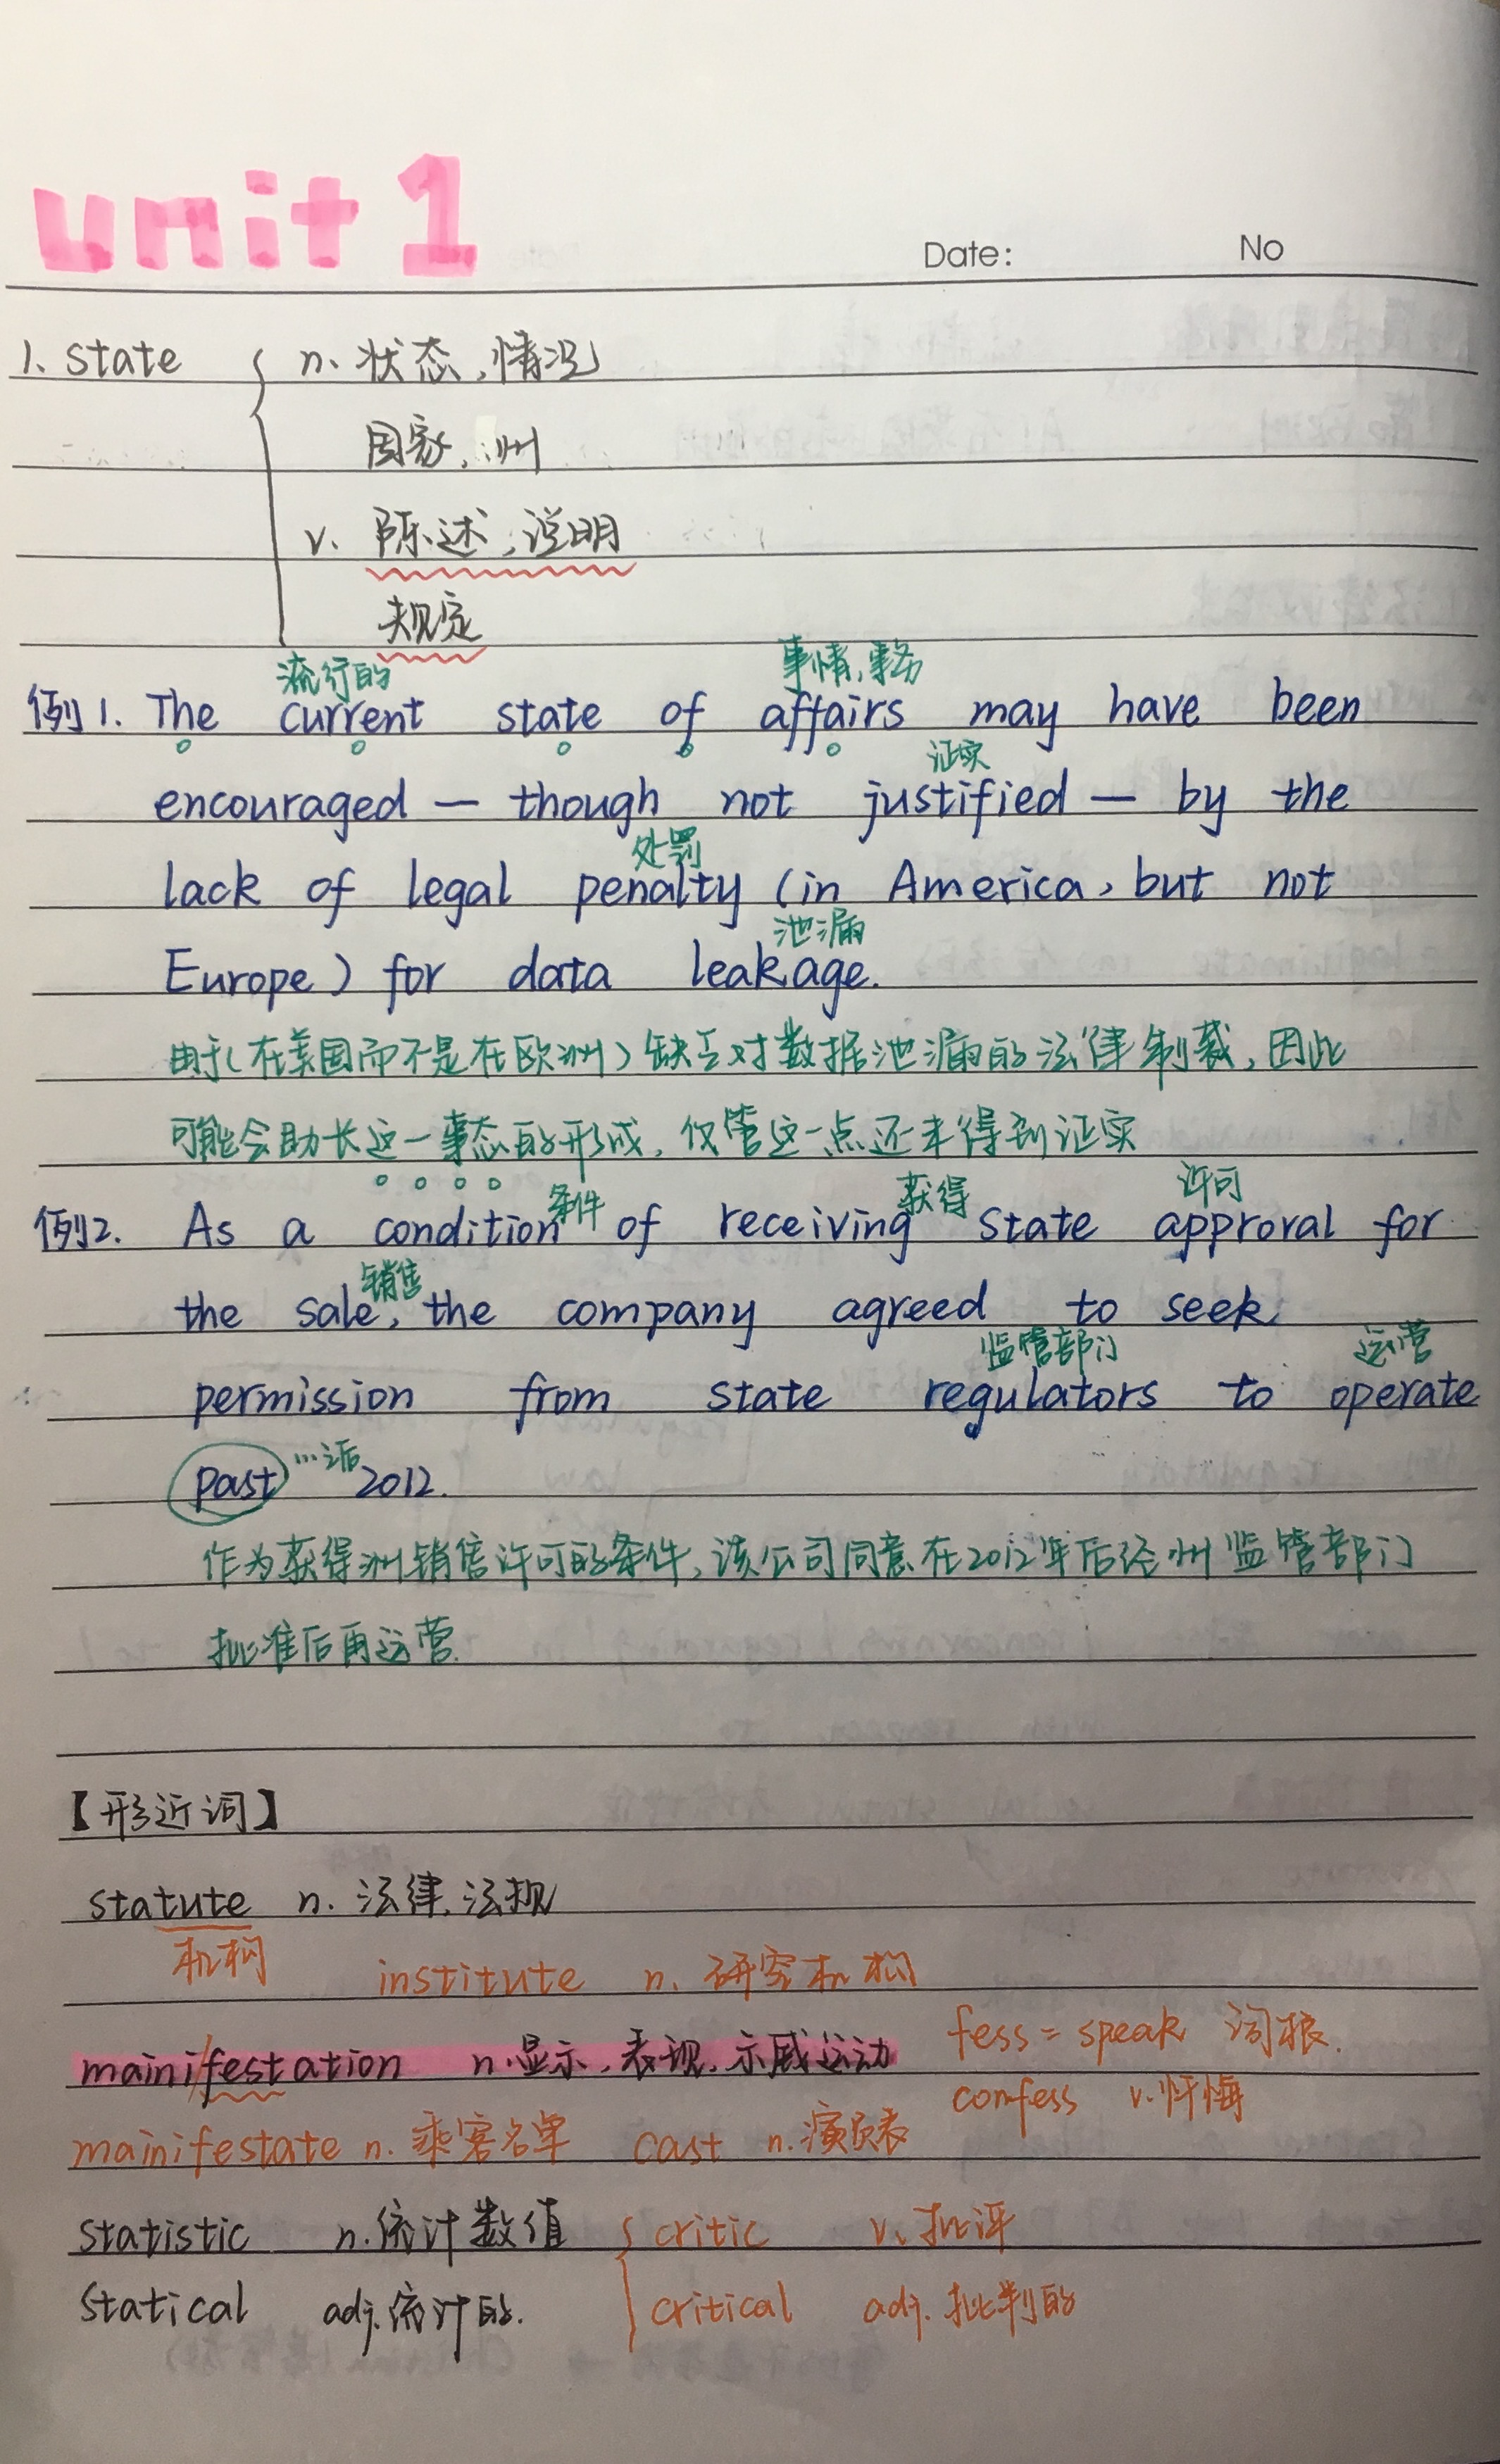 unit 1
Date: No
1. state { n. 状态,情况
国家,州
v. 陈述,说明
规定
流行的 事情,事务
例1. The current state of affairs may have been
证实
encouraged — though not justified — by the
处罚
lack of legal penalty (in America, but not
泄漏
Europe) for data leakage.
由于(在美国而不是在欧洲)缺乏对数据泄漏的法律制裁,因此
可能会助长这一事态的形成,仅管这一点还未得到证实
条件 获得 许可
例2. As a condition of receiving state approval for
销售
the sale, the company agreed to seek
监管部门 运营
permission from state regulators to operate
past …之后 2012.
作为获得州销售许可的条件,该公司同意在2012年后经州监管部门
批准后再运营.
【形近词】
statute n. 法律,法规
机构 institute n. 研究机构
mainifestation n.显示,表现,示威运动 fess = speak 词根.
confess v.忏悔
mainifestate n. 乘客名单 cast n.演员表
statistic n.统计数值 { critic v. 批评
statical adj.统计的. critical adj. 批判的